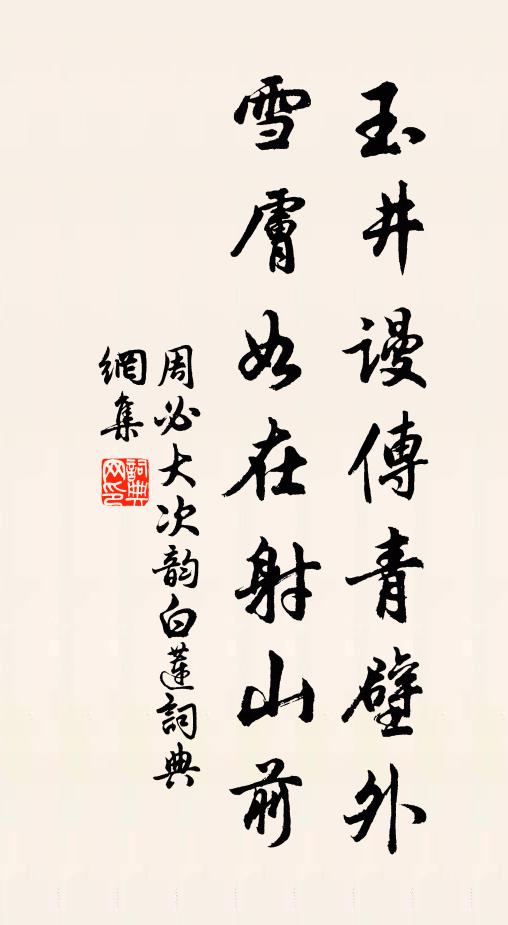 玉井謾傳青壁外
雪膚如在射山前
周必大次韵白蓮詞典
網集
詞典网印